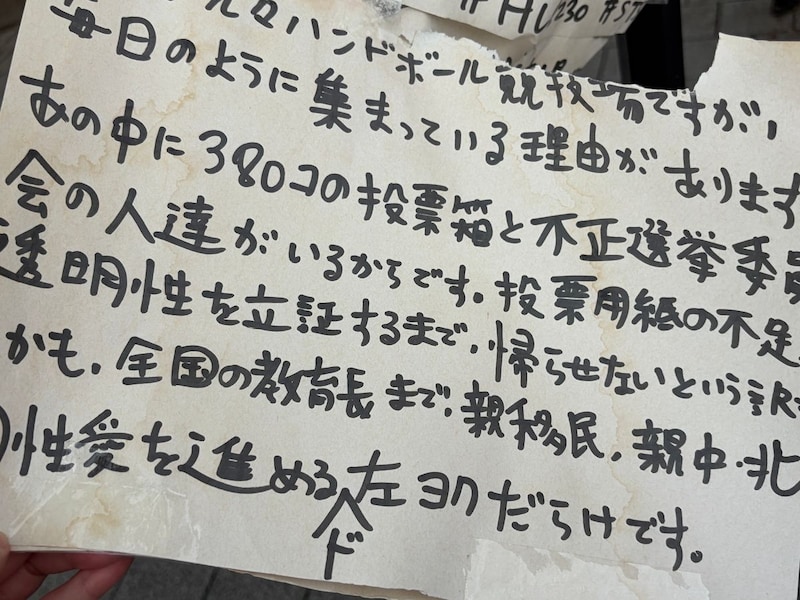 #HL 230 #ST
元々ハンドボール競技場ですが,
毎日のように集まっている理由があります
あの中に380コの投票箱と不正選挙委員
会の人達がいるからです。投票用紙の不足
透明性を立証するまで,帰らせないという訳
かも,全国の教育長まで,親移民,親中・北
性愛を進める左ヨクだらけです。
ヘド